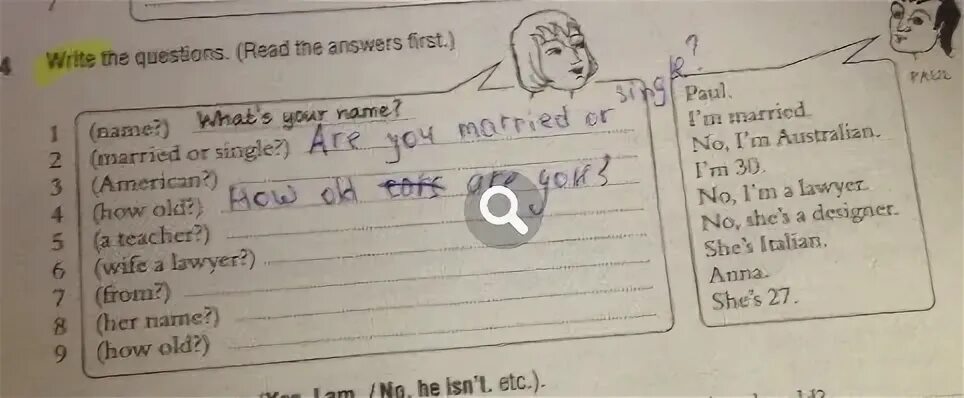 4 Write the questions. (Read the answers first.)
PAUL
1 (name?) What's your name?
2 (married or single?) Are you married or singl?
3 (American?)
4 (how old?) How old are
5 (a teacher?)
6 (wife a lawyer?)
7 (from?)
8 (her name?)
9 (how old?)
Paul.
I'm married.
No, I'm Australian.
I'm 30.
No, I'm a lawyer.
No, she's a designer.
She's Italian.
Anna.
She's 27.
I am. /No, he isn't. etc.).